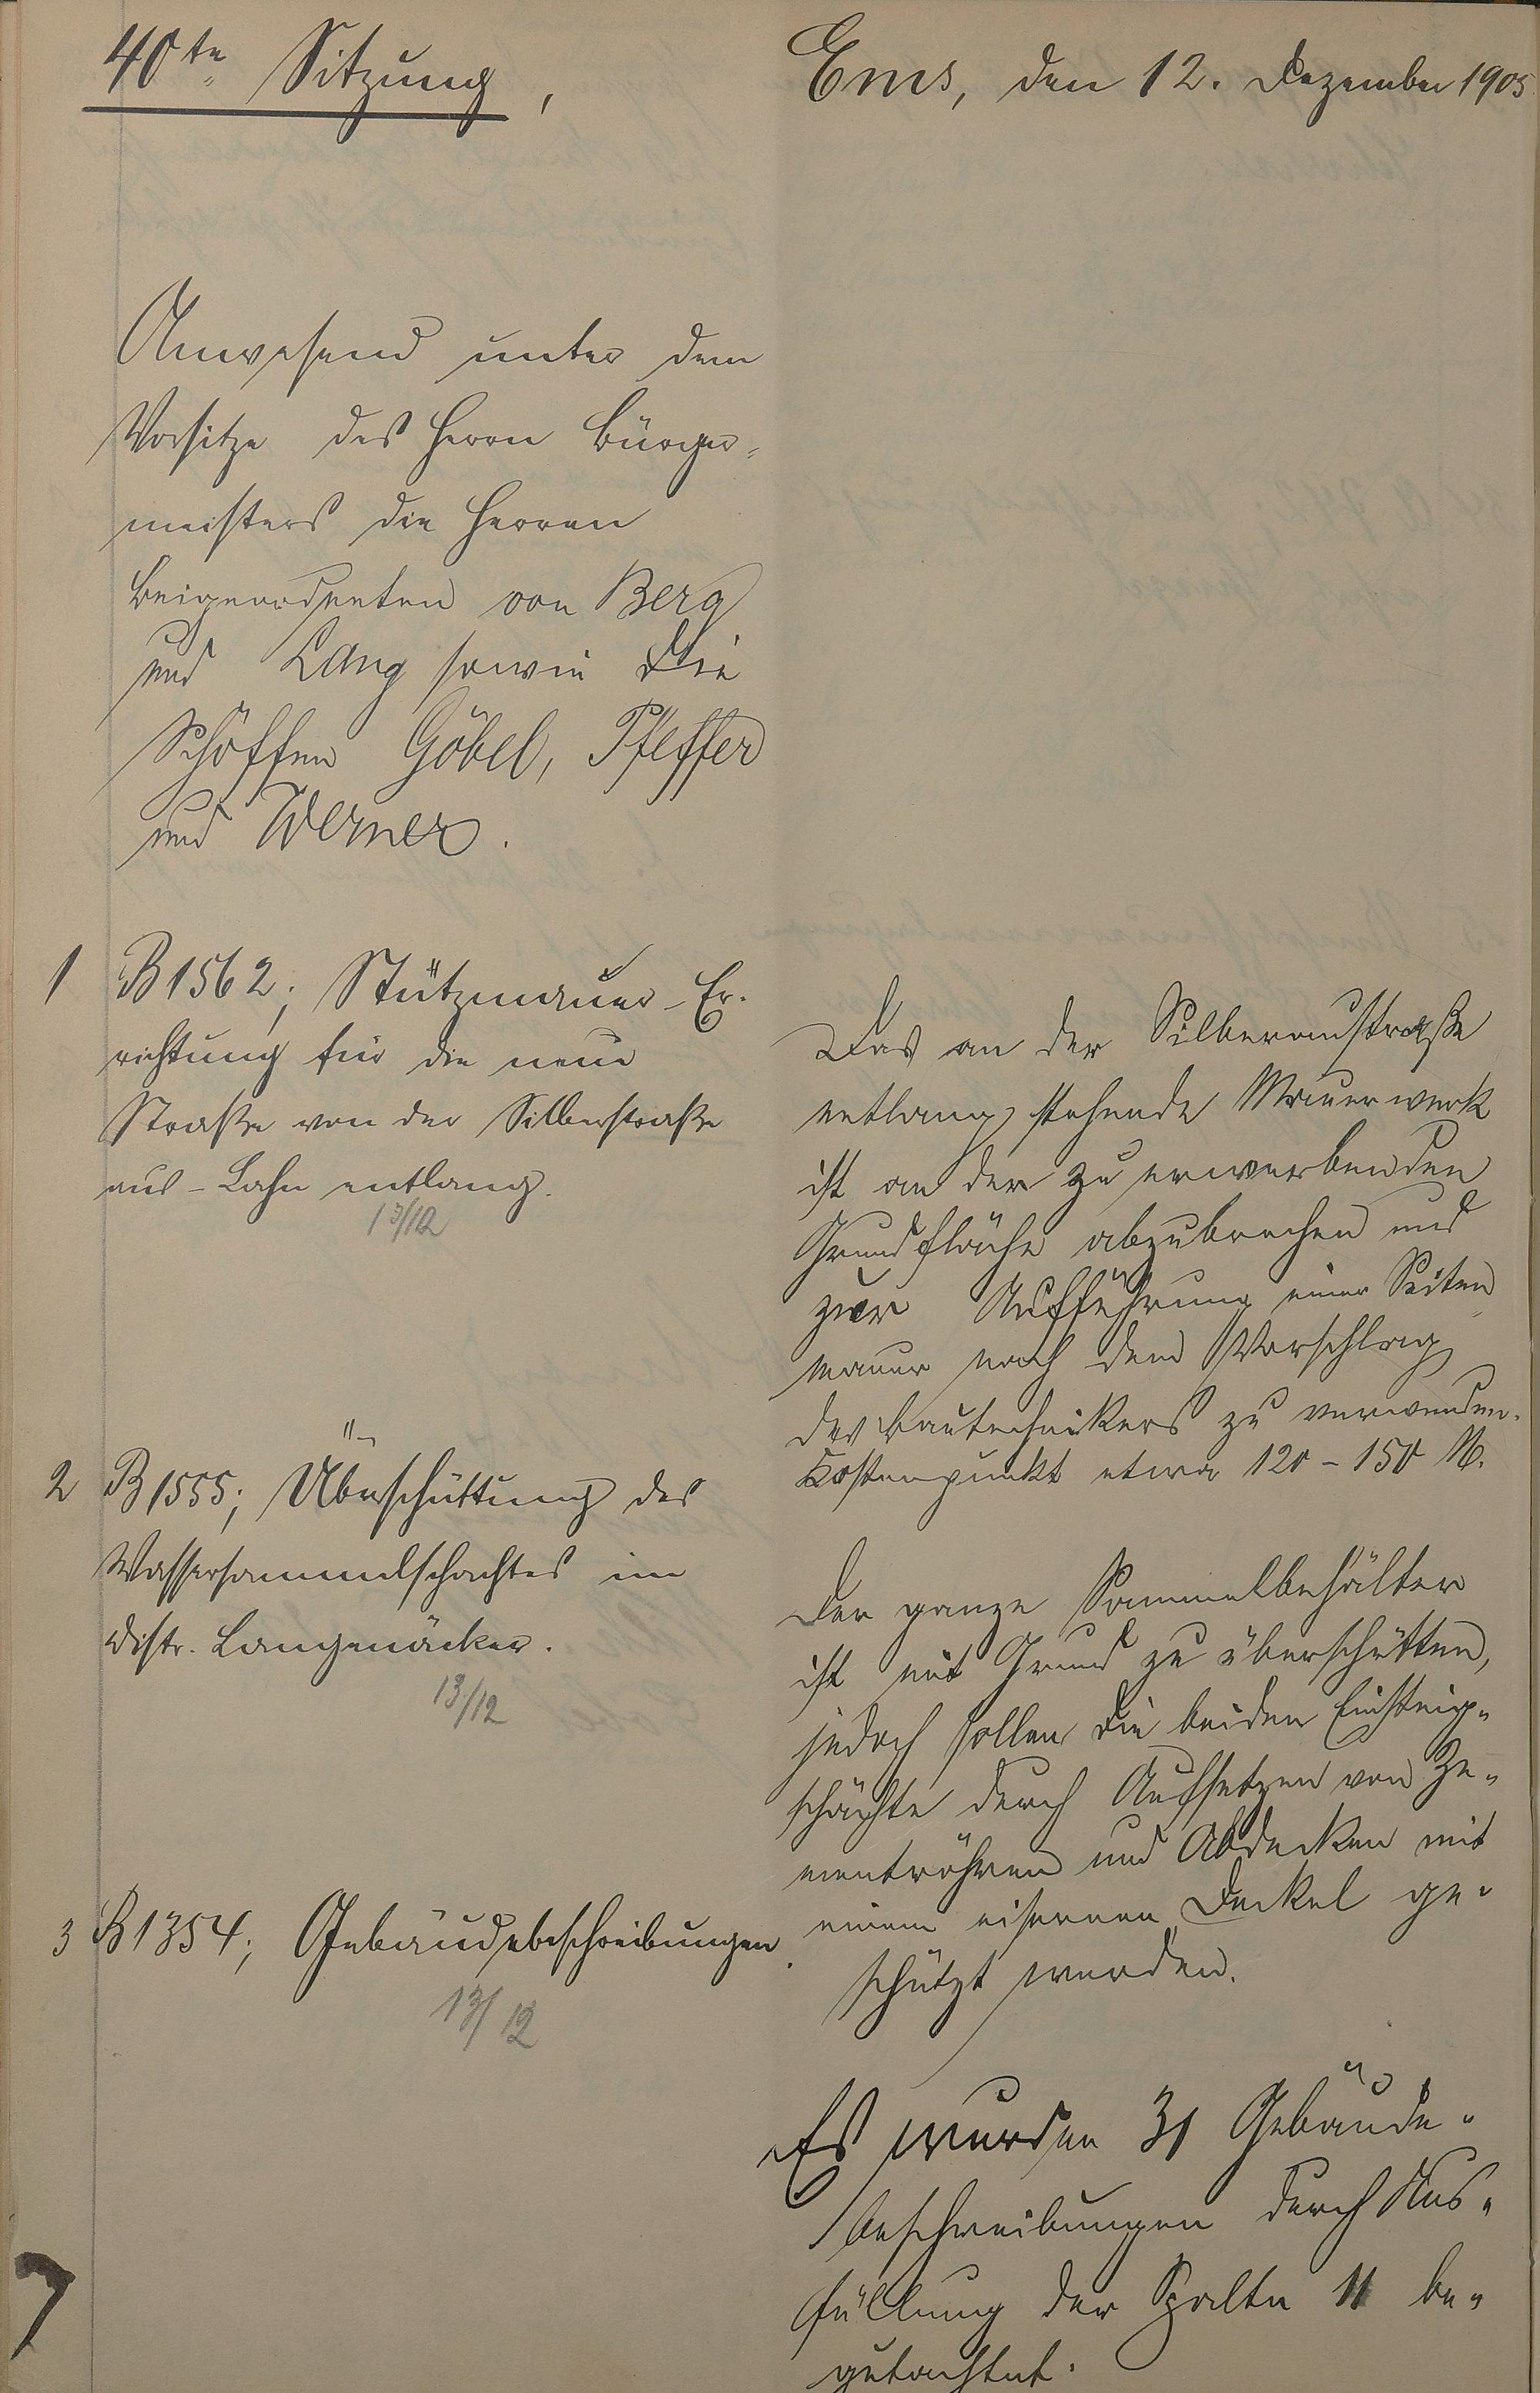 40te Sitzung,
Ems, den 12. Dezember 1905
Anwesend unter dem
Vorsitze des Herrn Bürger-
meisters die Herren
Beigeordneten von Berg
und Lang sowie die
Schöffen Göbel, Pfeffer
und Werner.
1 B 1562; Stützmauer-Er-
richtung für die neue
Straße von der Silberstraße
aus - Lahn entlang.
13/12
Das an der Silberaustraße
entlang stehende Mauerwerk
ist an der zu erwerbenden
Grundfläche abzubrechen und
zur Aufführung einer Seiten-
mauer nach dem Vorschlag
des Bautechnikers zu verwenden.
Kostenpunkt etwa 120 - 150 M.
2 B 1555; Überschüttung des
Wassersammelschachtes im
Distr. Langenäcker.
13/12
Der ganze Sammelbehälter
ist mit Grund zu überschütten,
jedoch sollen die beiden Einsteig-
schächte durch Aufsetzen von Ze-
mentröhren und Abdecken mit
einem eisernen Deckel ge-
schützt werden.
3 B 1354; Gebäudebeschreibungen.
13/12
Es wurden 31 Gebäude-
beschreibungen durch Aus-
füllung der Spalte 11 be-
gutachtet.
7